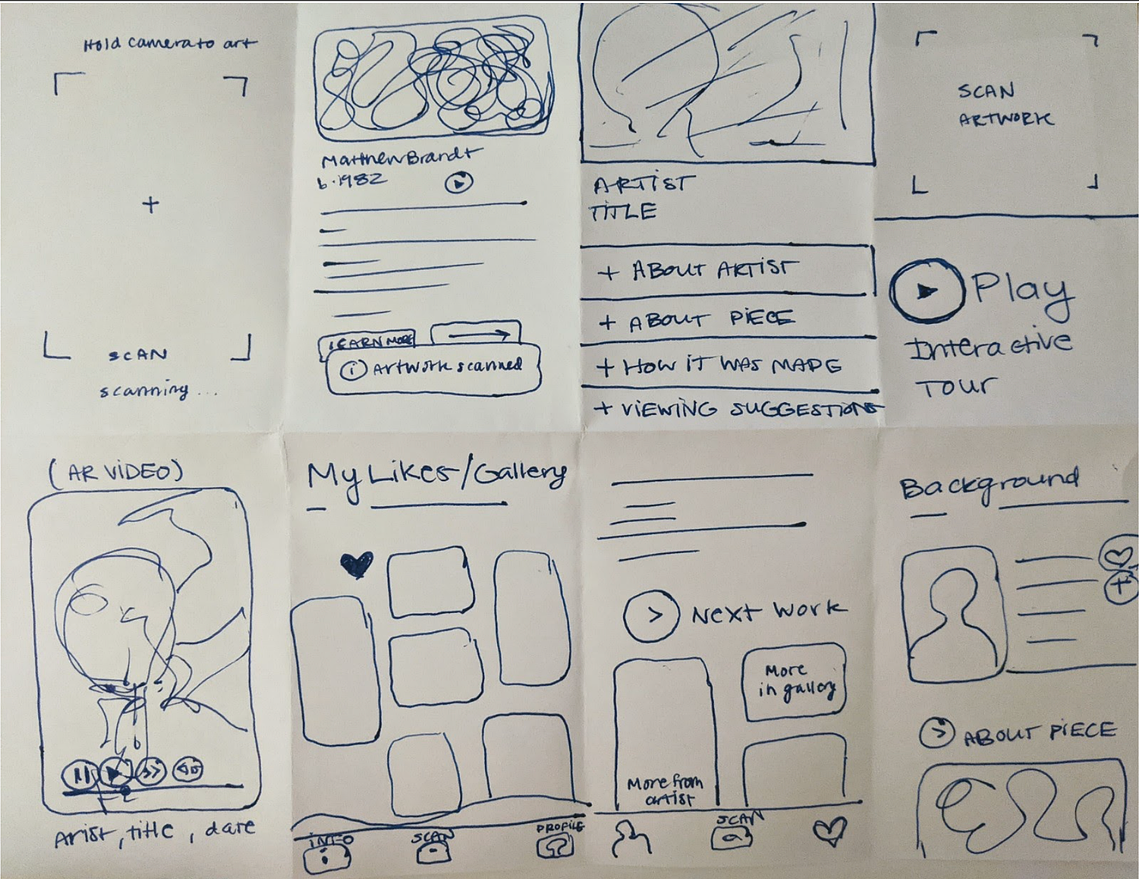 Hold camera to art
SCAN
scanning...
Matthew Brandt
b. 1982
LEARN MORE
i Artwork scanned
ARTIST
TITLE
+ ABOUT ARTIST
+ ABOUT PIECE
+ HOW IT WAS MADE
+ VIEWING SUGGESTIONS
SCAN
ARTWORK
Play
Interactive
TOUR
(AR VIDEO)
Arist, title, date
My Likes/Gallery
INFO
SCAN
PROFILE
> NEXT WORK
More
in gallery
More from
artist
SCAN
Background
> ABOUT PIECE